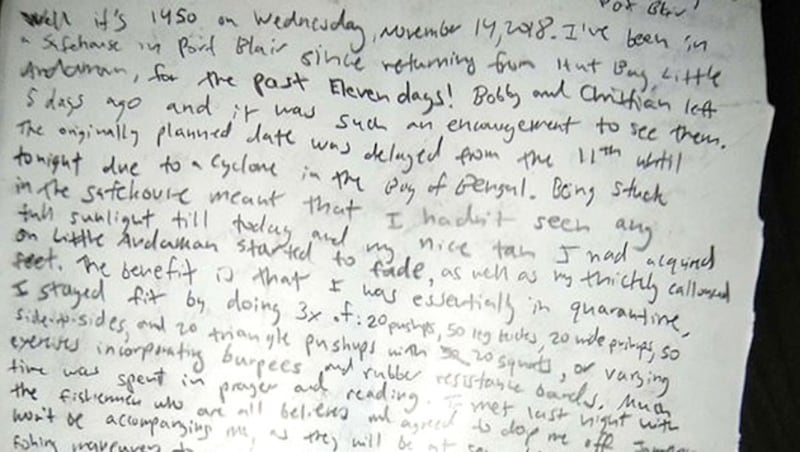 Port Blair
Well it's 1450 on Wednesday, November 14, 2018. I've been in
a safehouse in Port Blair since returning from Hut Bay, Little
Andaman, for the past Eleven days! Bobby and Christian left
5 days ago and it was such an encouragement to see them.
The originally planned date was delayed from the 11th until
tonight due to a Cyclone in the Bay of Bengal. Being stuck
in the safehouse meant that I hadn't seen any
full sunlight till today and my nice tan I had acquired
on Little Andaman started to fade, as well as my thickly calloused
feet. The benefit is that I was essentially in quarantine,
I stayed fit by doing 3x of: 20 pushups, 50 leg tucks, 20 wide pushups, 50
side-to-sides, and 20 triangle pushups with 20 squats, or varying
exercises incorporating burpees and rubber resistance bands. Much
time was spent in prayer and reading. I met last night with
the fishermen who are all believers and agreed to drop me off
won't be accompanying me, as they will be at
fishing maneuvers to